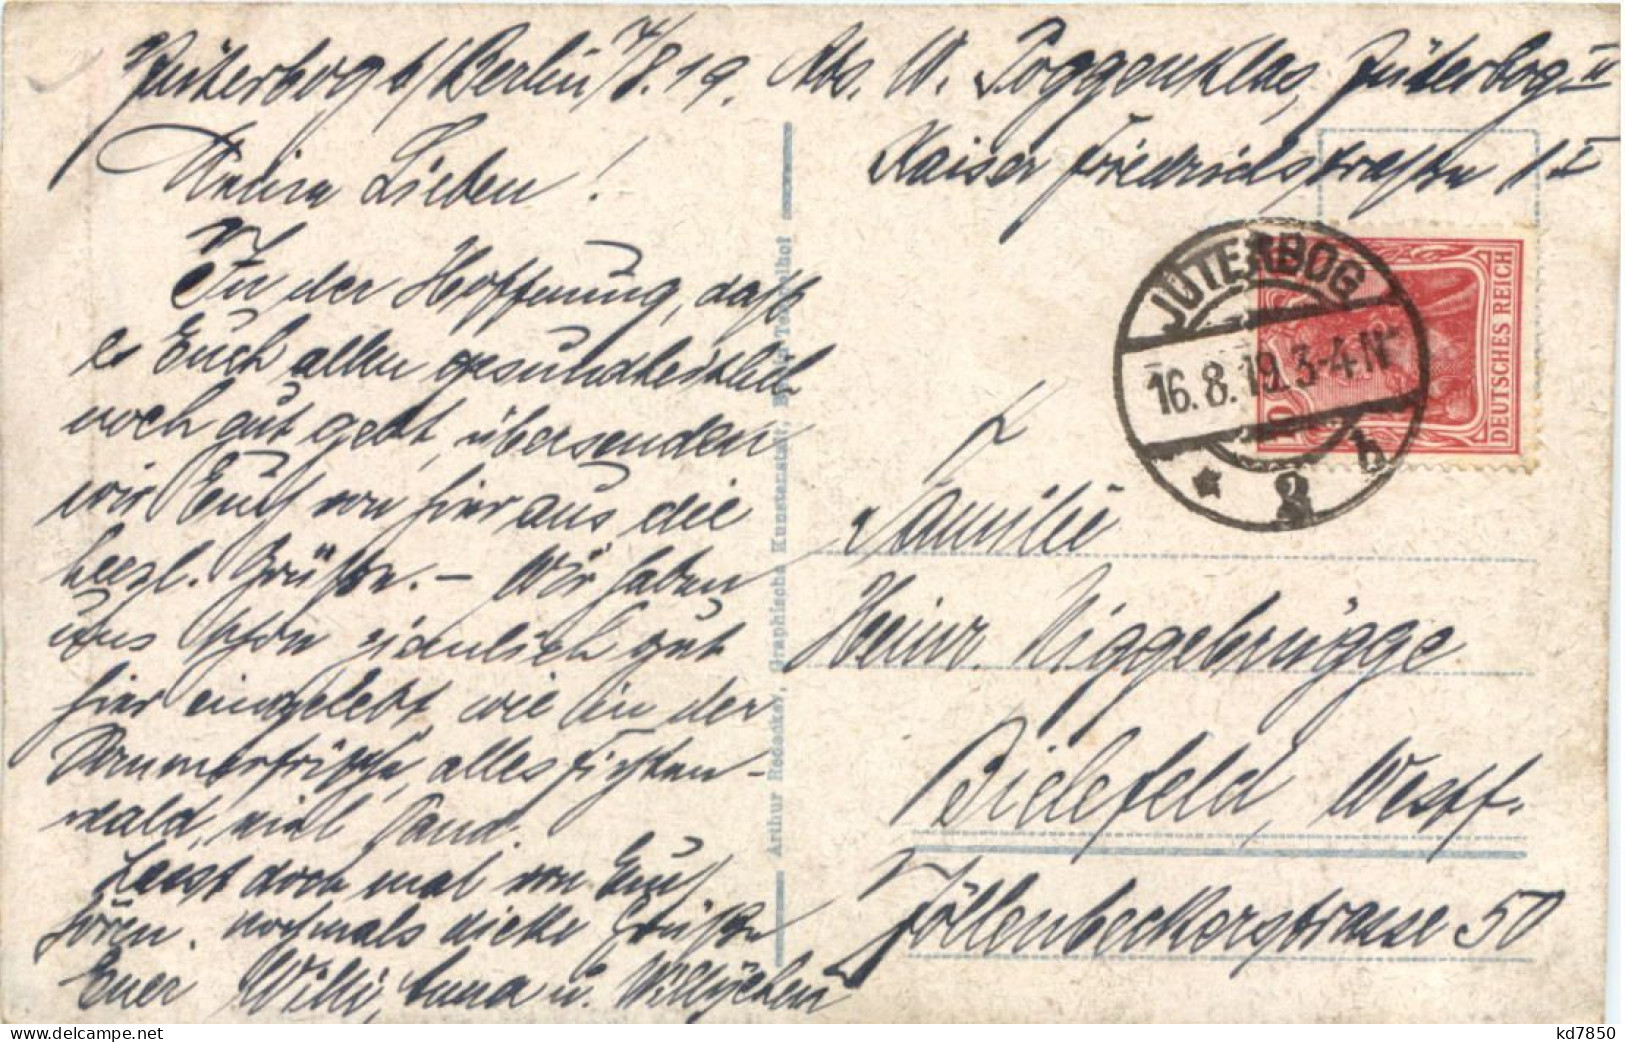 Jüterbog b/Berlin, /8.19.
Meine Lieben!
In der Hoffnung, daß
es Euch allen gesundheitlich
noch gut geht, übersenden
wir Euch von hier aus die
herzl. Grüße. – Wir haben
uns schon ziemlich gut
hier eingelebt, wie in der
Sommerfrische, alles Fichten-
wald, viel Sand.
Laßt doch mal von Euch
hören. Nochmals viele Grüße
Euer Willi, Anna u. Willychen
Abs. W. Poggenklas, Jüterbog II
Kaiser Friedrichstraße 1 I
JÜTERBOG
16.8.19. 3-4 N
* 2 b
DEUTSCHES REICH
10
Familie
Heinr. Niggebrügge
Bielefeld, Westf.
Jöllenbeckerstrasse 50
Arthur Rehdenke, Graphische Kunstanstalt, Berlin-Tempelhof
kd7850